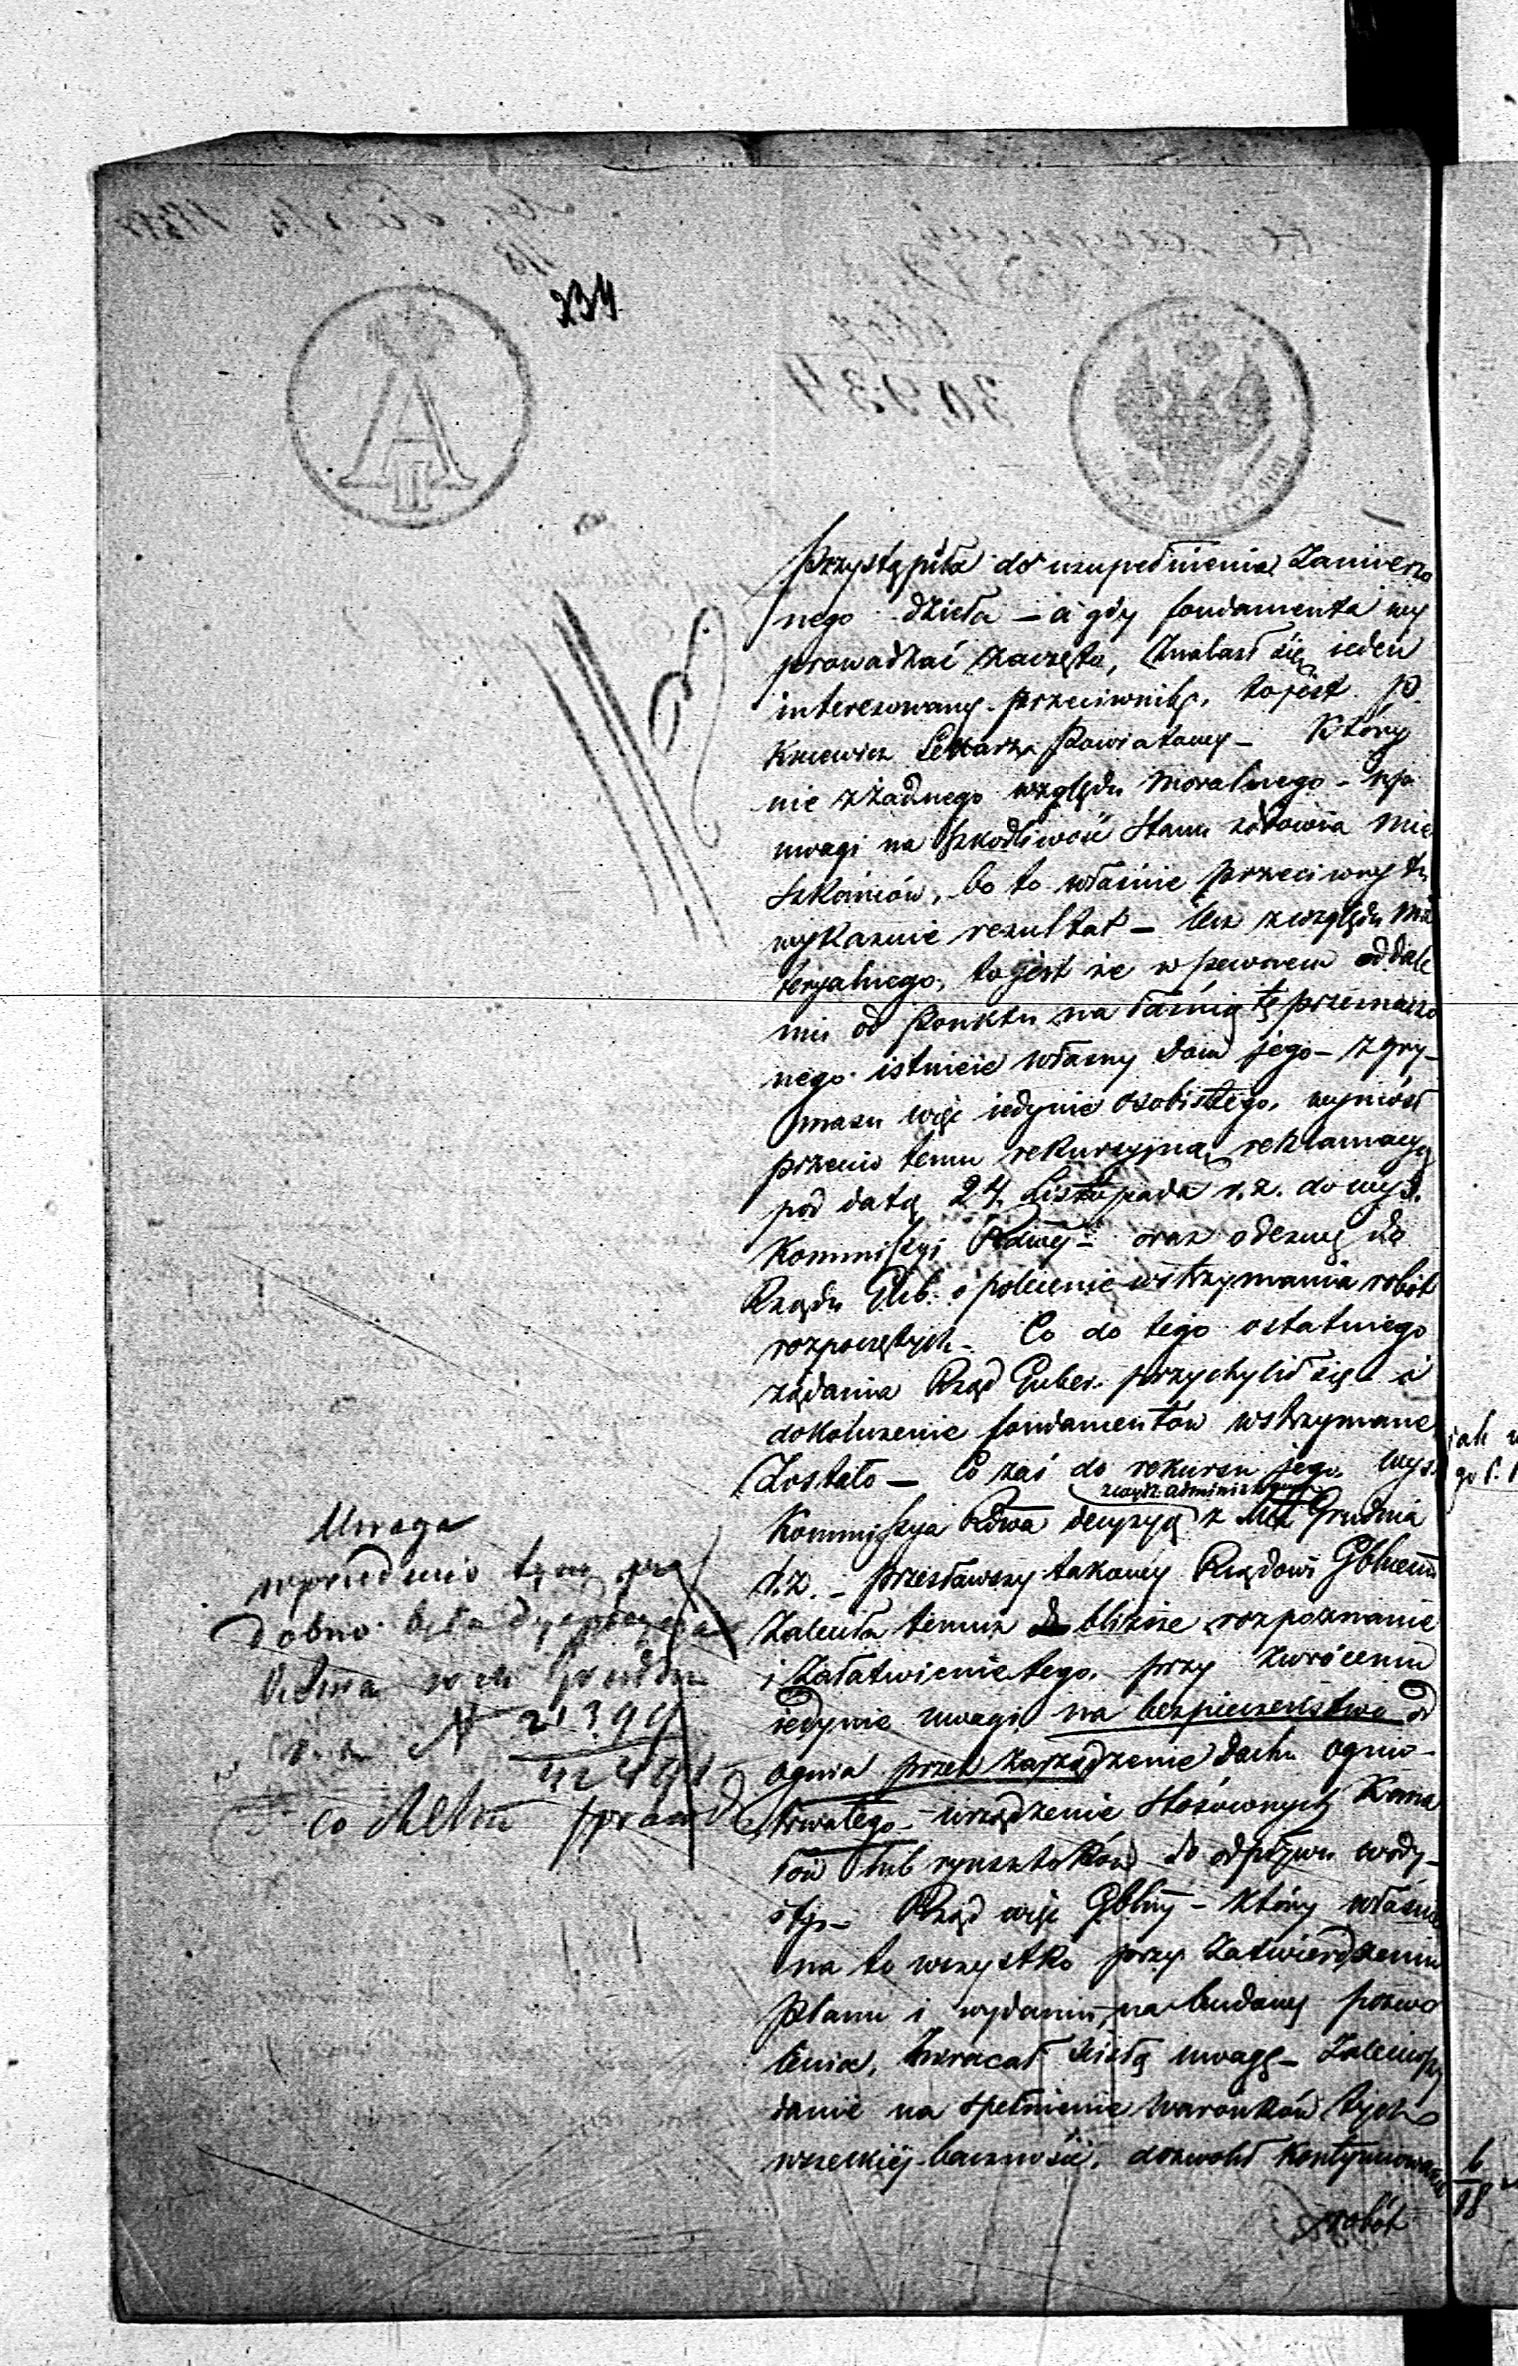 234
Przystąpiła do uzupełnienia Zamierzo
nego dzieła – a gdy fondamenta wy
prowadzać zaczęto, Znalazł się ieden
interesowany przeciwnik, to jest P.
Kncewicz Lekarz Powiatowy – Który
nie z żadnego względu moralnego –
uwagi na szkodliwość stanu zdrowia mie
szkańców, bo to właśnie przeciwny
wykazuie rezultat – lecz z względu ma
teryalnego, to jest że w pewnem oddale
niu od Ponktu na łaźnię tę przeznaczo
nego istnieie własny dom jego – Z gry-
masu więc iedynie osobistego, wyniósł
przeciw temu rekursyjną reklamacyą
pod datą 24 Listopada r.z. do wys.
Kommissyi Rdwéj – oraz odezwę do
Rządu Gub. o polecenie wstrzymania robót
rozpoczętych – Co do tego ostatniego
żądania Rząd Guber. przychylił się i
dokończenie fondamentów wstrzymane
Zostało – Co zaś do rekursu jego, wys.
Kommissya Rdwa decyzyą z Grudnia
r.z. – przesławszy takowy Rządowi Gblnemu
Zaleciła temuż bliższe rozpoznanie
i Załatwienie tego, przy zwróceniu
iedynie uwagi na bezpieczeństwo od
ognia przez zarządzenie dachu ognio-
trwałego – urządzenie stósownych Kana
łów lub rynsztoków do odpływu wody –
Rząd więc Gblny – który właśnie
na to wszystko przy Zatwierdzeniu
Planu i wydaniu na budowę pozwo
lenia, zwracał uwagę – Zaleciwszy
danie na spełnienie warunków tych
wszelkiéj baczności, dozwolił kontynuowania
robót
Uwaga
dobno była dyspozycja
Rdwa Grudnia
N 21399
42491
co Refer sprawdzi